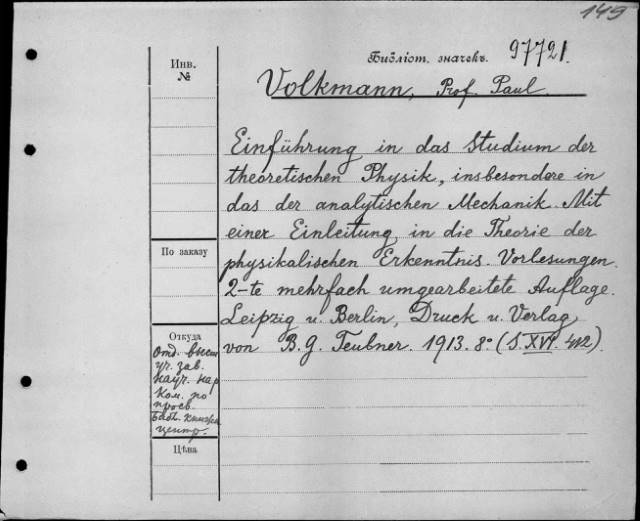 149
Библіот. значекъ. 97721.
Инв.
№
Volkmann, Prof. Paul.
Einführung in das Studium der
theoretischen Physik, insbesondere in
das der analytischen Mechanik. Mit
einer Einleitung in die Theorie der
physikalischen Erkenntnis. Vorlesungen.
2-te mehrfach umgearbeitete Auflage.
Leipzig u. Berlin, Druck u. Verlag
von B. G. Teubner. 1913. 8° (S. XVI. 412).
По заказу
Откуда
Отд. высш
уч. зав.
науч. нар
ком. по
просв.
книжн
центр.
Цѣна